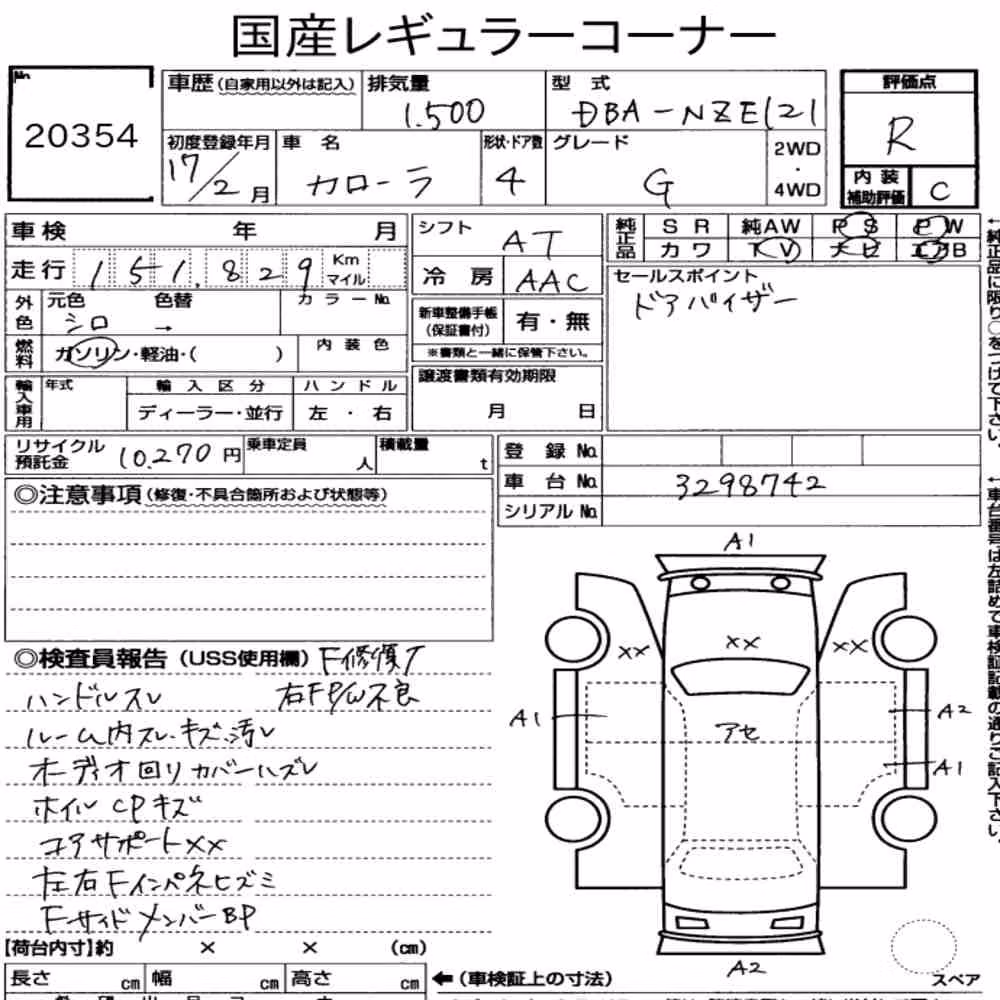 国産レギュラーコーナー
No.
20354
車歴(自家用以外は記入)
排気量
1.500
型式
DBA-NZE121
評価点
R
初度登録年月
17/2月
車名
カローラ
形状・ドア数
4
グレード
G
2WD
・
4WD
内装
補助評価
C
車検 年 月
走行 151.829 Km マイル
外色
元色
シロ
色替
→
カラーNo.
燃料
ガソリン・軽油・( )
内装色
輸入車用
年式
輸入区分
ディーラー・並行
ハンドル
左・右
シフト
AT
冷房
AAC
新車整備手帳
(保証書付)
有・無
※書類と一緒に保管下さい。
譲渡書類有効期限
月 日
純正品
SR 純AW PS PW
カワ TV ナビ エアB
セールスポイント
ドアバイザー
←純正品に限り○をつけて下さい。
リサイクル
預託金
10.270円
乗車定員
人
積載量
t
登録No.
車台No.
3298742
シリアルNo.
←車台番号は左詰めで車検証記載の通りご記入下さい。
◎注意事項(修復・不具合箇所および状態等)
◎検査員報告(USS使用欄) F修復了
ハンドルスレ 右FP/W不良
ルーム内スレ・キズ・汚レ
オーディオ回りカバーハズレ
ホイルCPキズ
コアサポートXX
左右Fインパネヒズミ
FサイドメンバーBP
A1
XX
XX
XX
A1
アセ
A2
A1
A2
【荷台内寸】約 × × (cm)
長さ cm 幅 cm 高さ cm
←(車検証上の寸法)
スペア